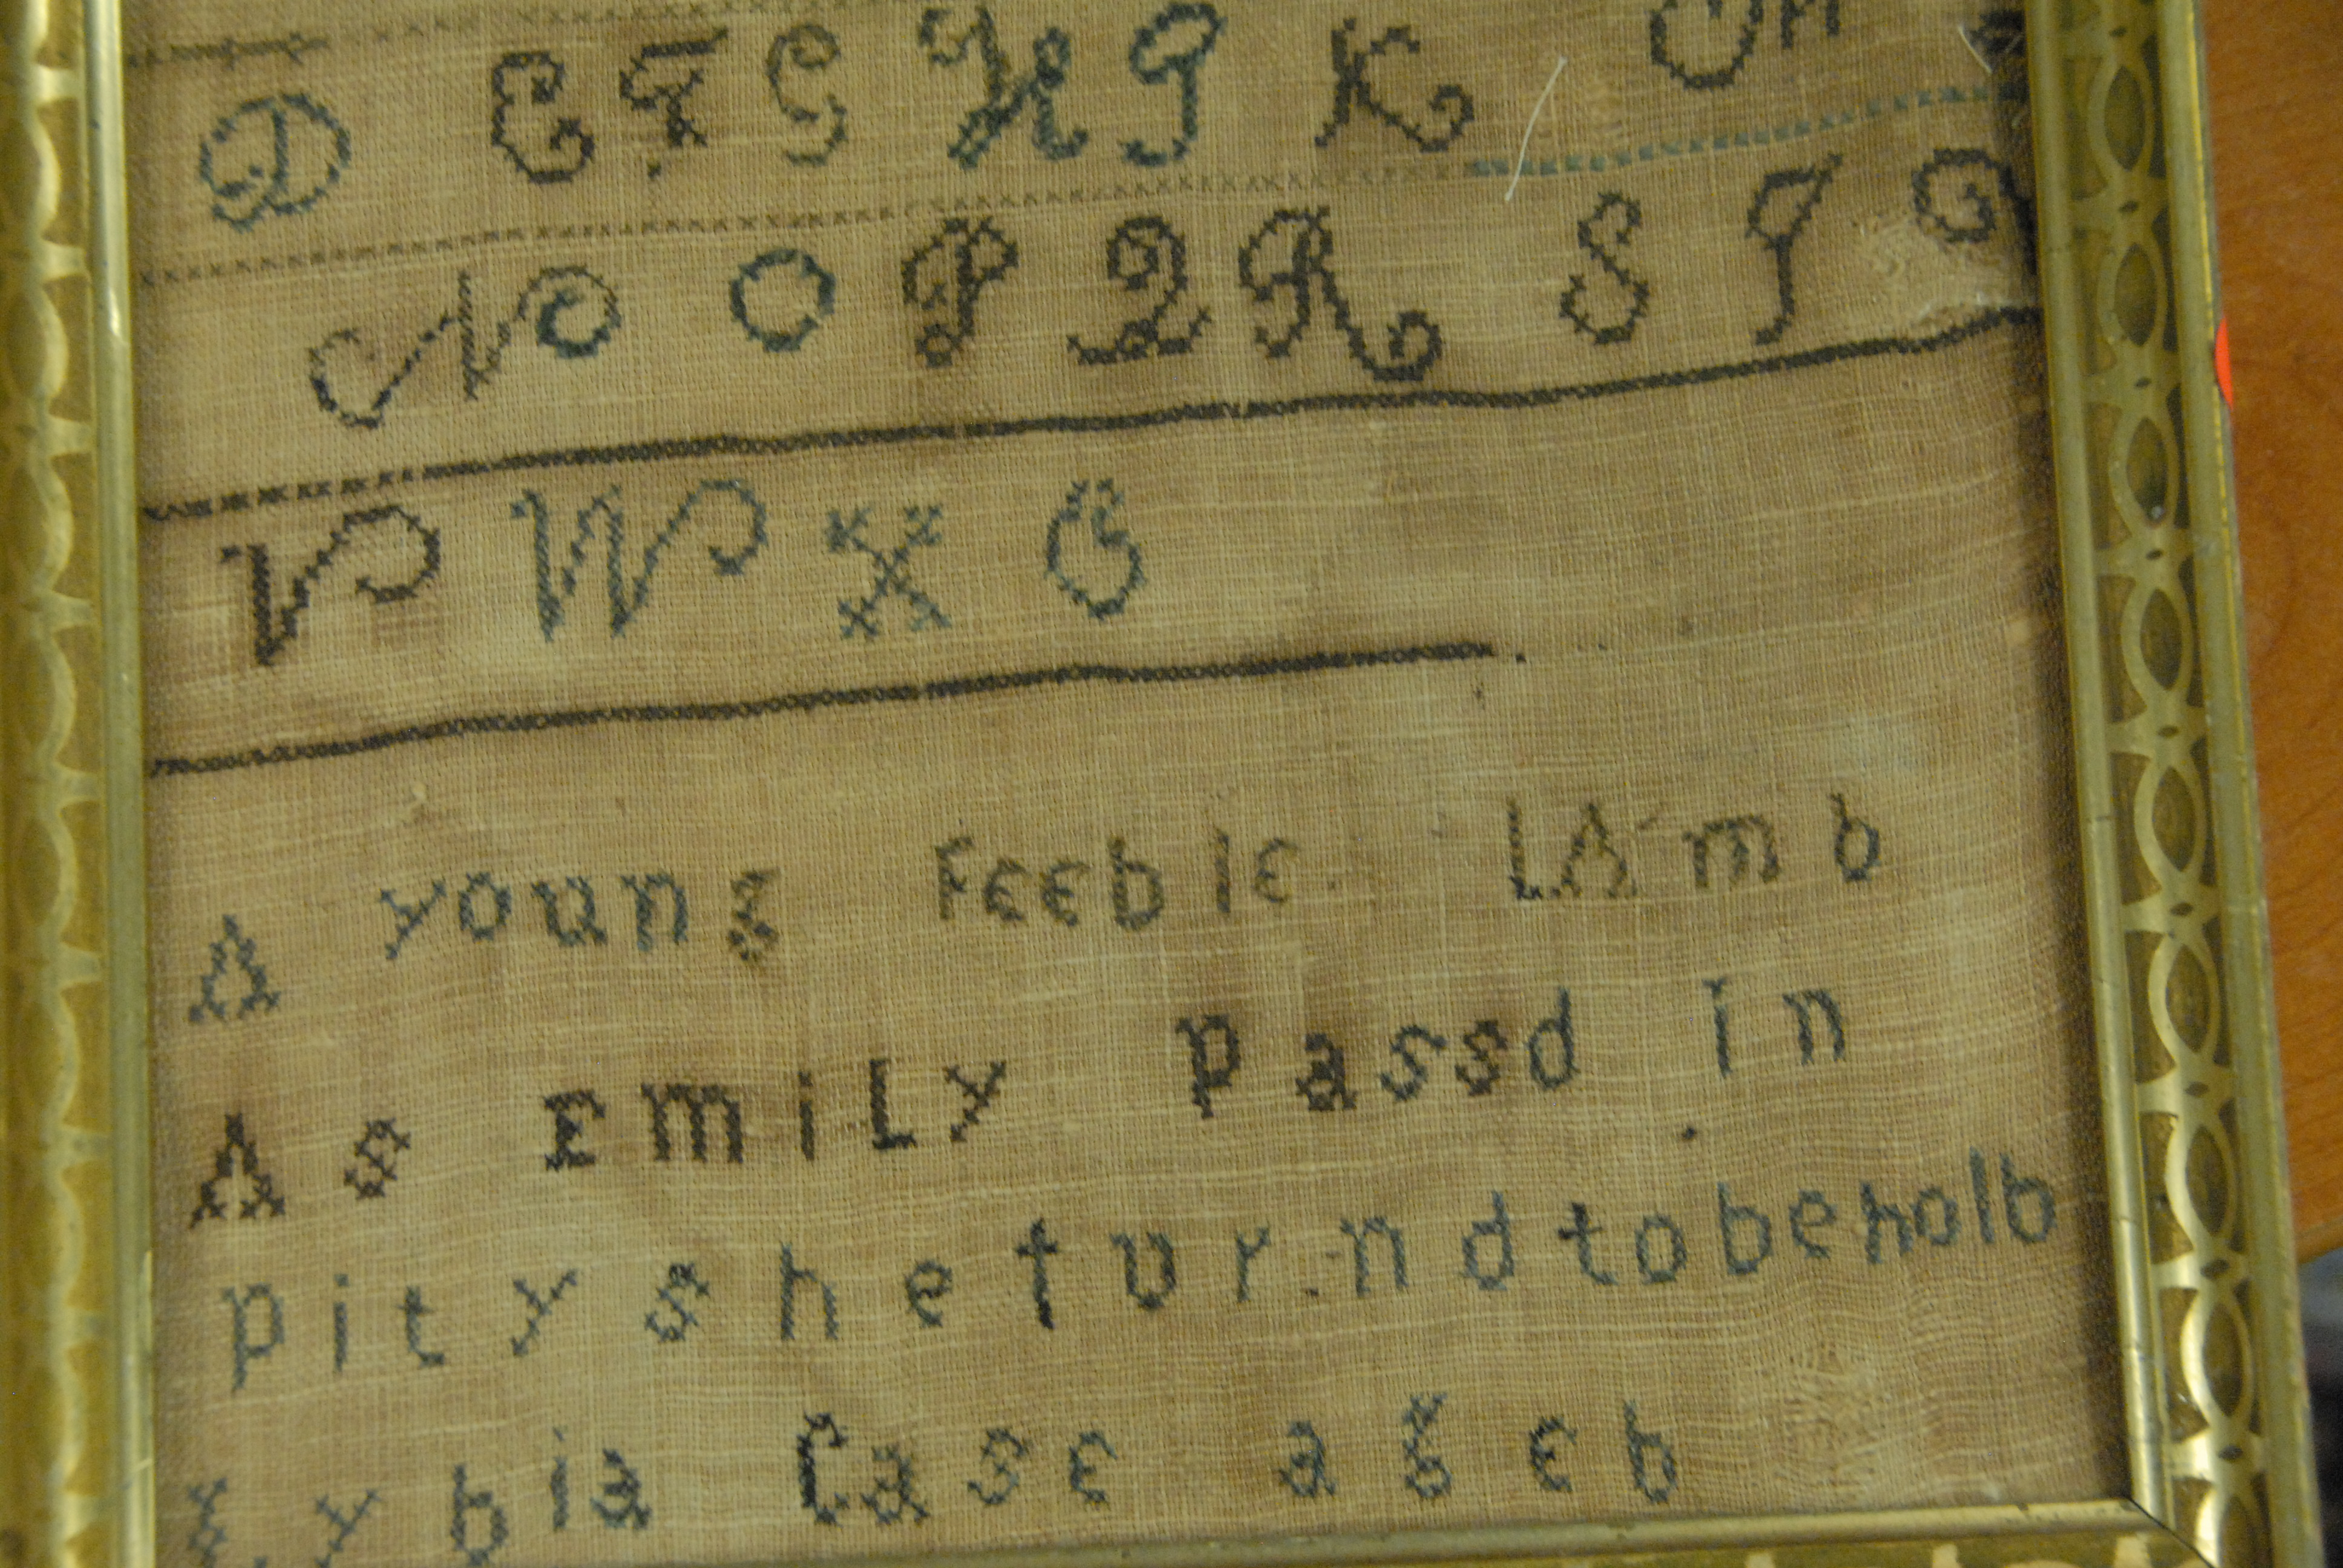 D E F G H I K M
N O O P Q R S T
V W X
A young Feeble LAmb
As Emily Passd in
Pity she turnd tobeholb
Lybia Case ageb